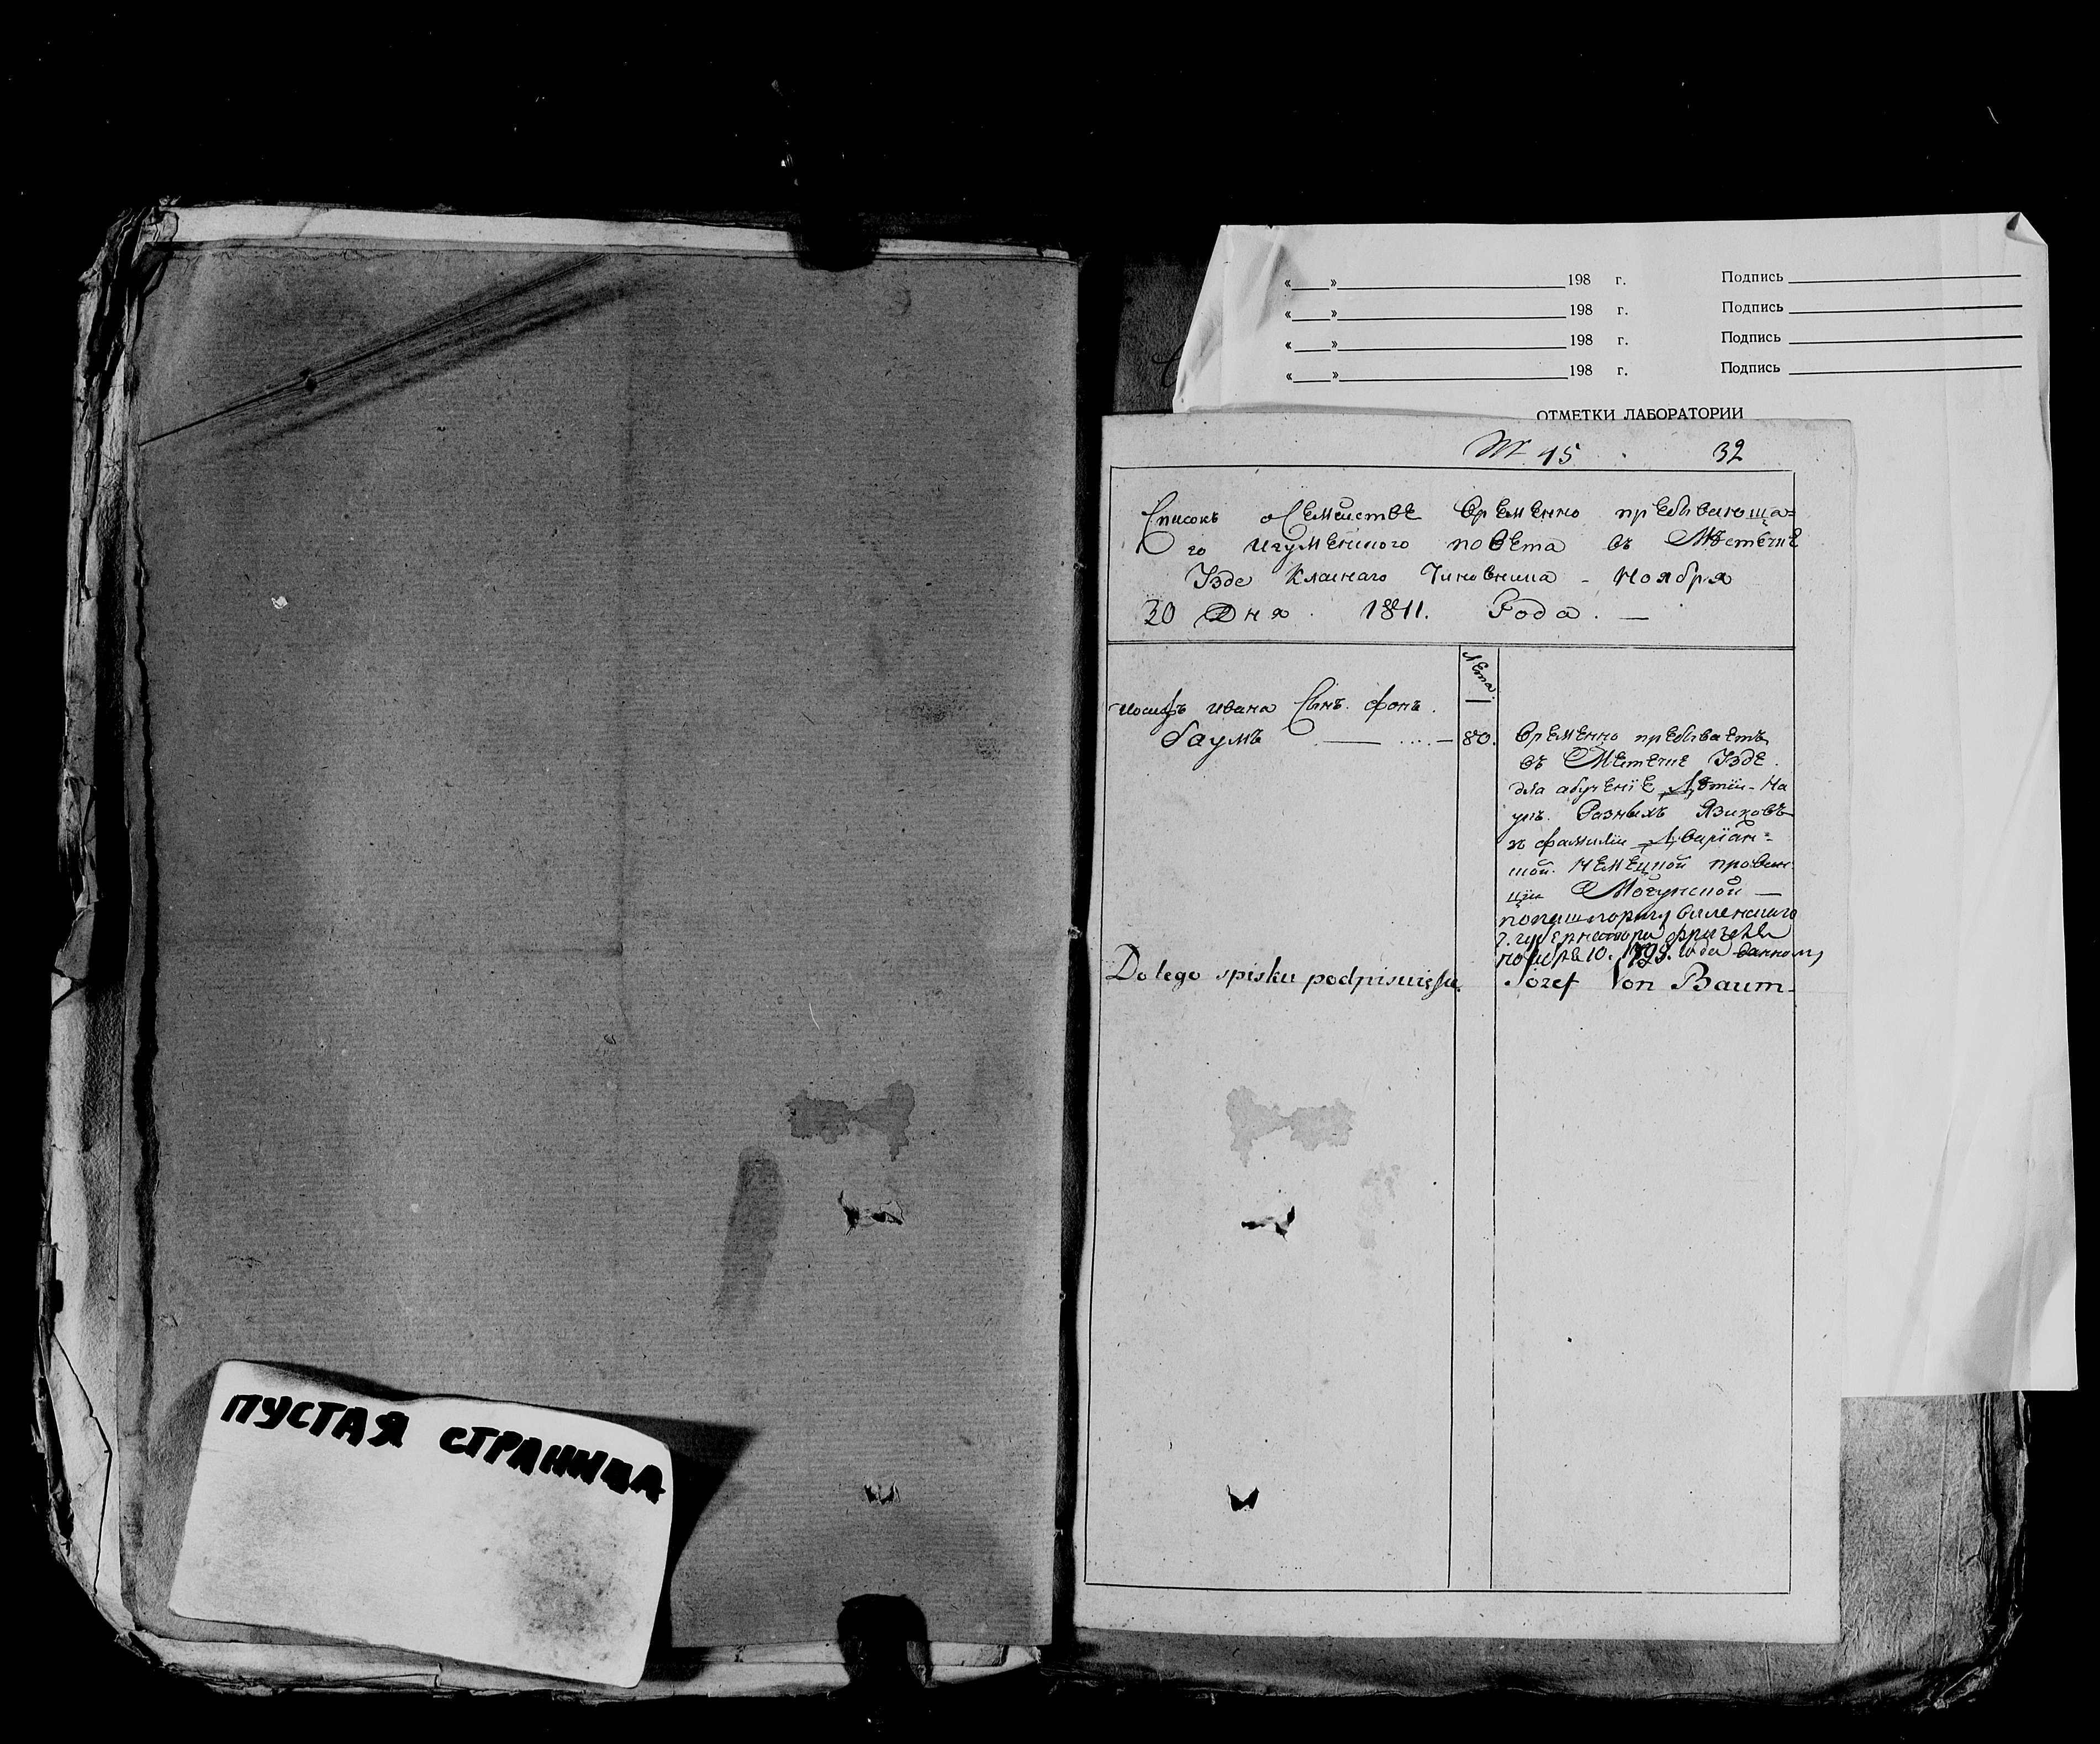 ПУСТАЯ СТРАНИЦА
« » 198 г. Подпись
« » 198 г. Подпись
« » 198 г. Подпись
« » 198 г. Подпись
ОТМЕТКИ ЛАБОРАТОРИИ
№ 15 32
Списокъ о Семействе временно пребывающа=
го Игуменского повета въ Мѣстечке
Узде Класнаго Чиновника - Ноября
30 Дня 1811. Года. —
Лета.
Иосифъ Ивана Сынъ. фонъ.
баумъ 80.
временно пребываетъ
въ Местечке Узде.
для абучение Детии - На
укъ. Разныхъ Языковъ
зъ фамилии Двариан=
ской. Немецкой правин
ции Могунской —
попашпорту виленскаго
г. губернатора фризеля
ноября 10. 1798. года данному
Do tego spisku podpisuię się. Jozef Von Baum.